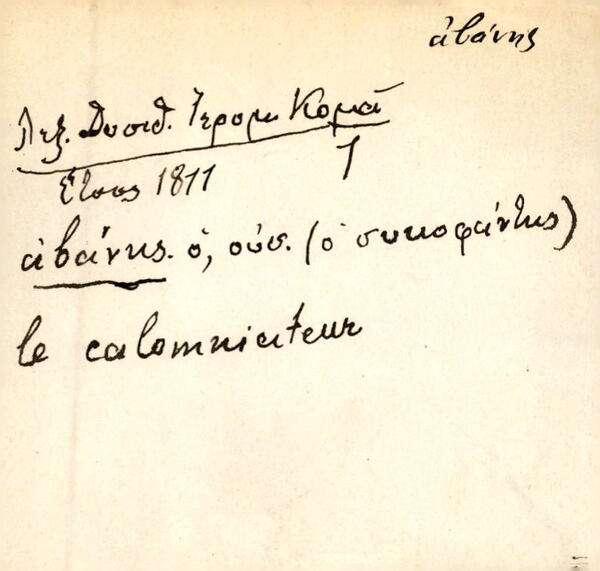 ἀβάνης
Λεξ. Δοσιθ. Ἱερομ. Κομᾶ
1
Ἔτους 1811
ἀβάνης. ὁ, οὐσ. (ὁ συκοφάντης)
le calomniateur